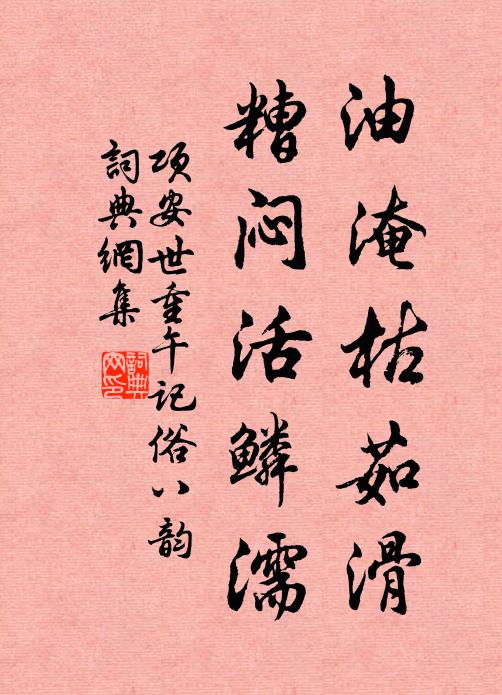 油淹枯茹滑
糟闷活鳞濡
项安世重午记俗八韵
詞典網集
詞典网印